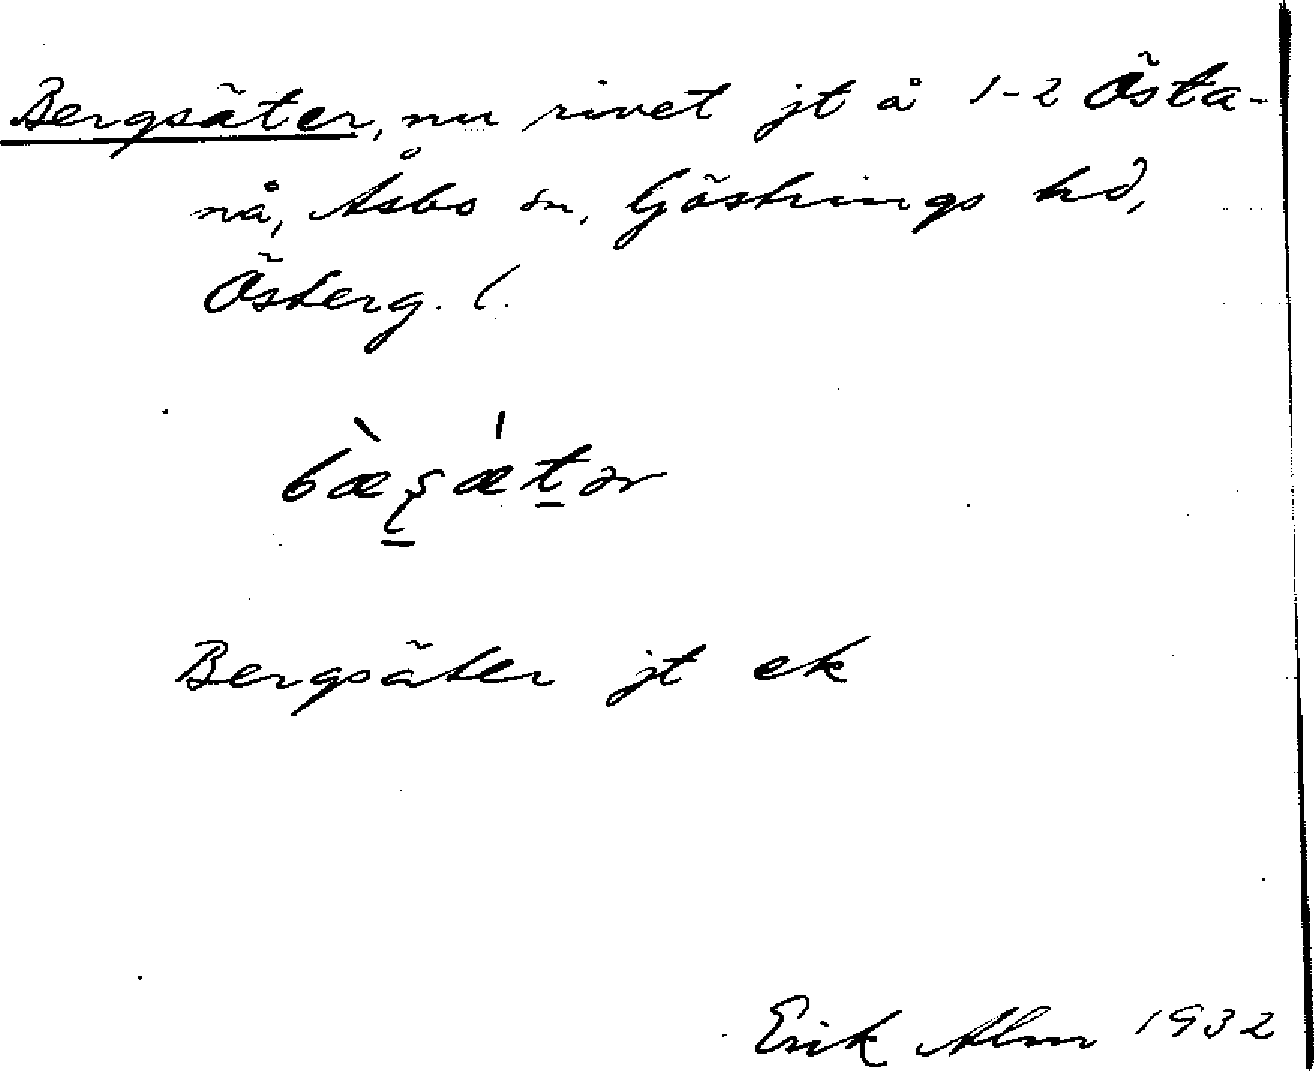 Bergsäter, nu rivet jt å 1-2 Östa-
nå, Åsbo sn, Göstrings hd,
Österg. l.
Bergsäter jt ek
Erik Alm 1932